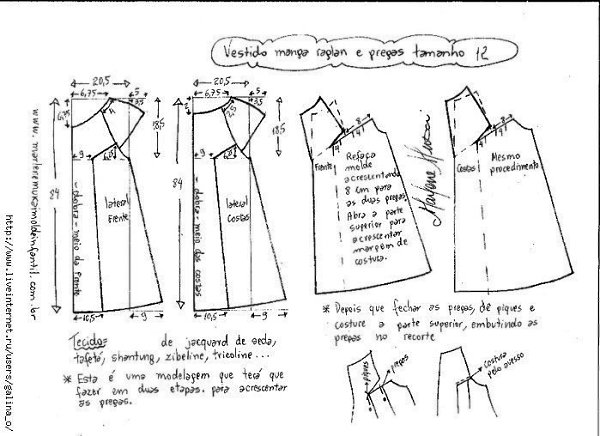 Vestido manga raglan e pregas tamanho 12
20,5
6,75
5
3,5
6,75
4
18,5
9
6,8
84
lateral
frente
- dobra - meio da frente
10,5
9
20,5
6,75
5
3,5
2
2,5
18,5
9
6,8
84
lateral
costas
- dobra - meio das costas
10,5
9
8
4
4
Frente
Refaça
molde
acrescentando
8 cm para
as duas pregas,
Abra a parte
superior para
acrescentar
margem de
costura.
8
4
4
Costas
Mesmo
procedimento
Marlene Mukai
www.marlenemukaimoldeinfantil.com.br
http://www.liveinternet.ru/users/galina_o/
Tecidos de jacquard de seda,
tafetá, shantung, zibeline, tricoline...
* Esta é uma modelagem que terá que
fazer em duas etapas. para acrescentar
as pregas.
* Depois que fechar as pregas, dê piques e
costure a parte superior, embutindo as
pregas no recorte
piques
pregas
costura
pelo avesso